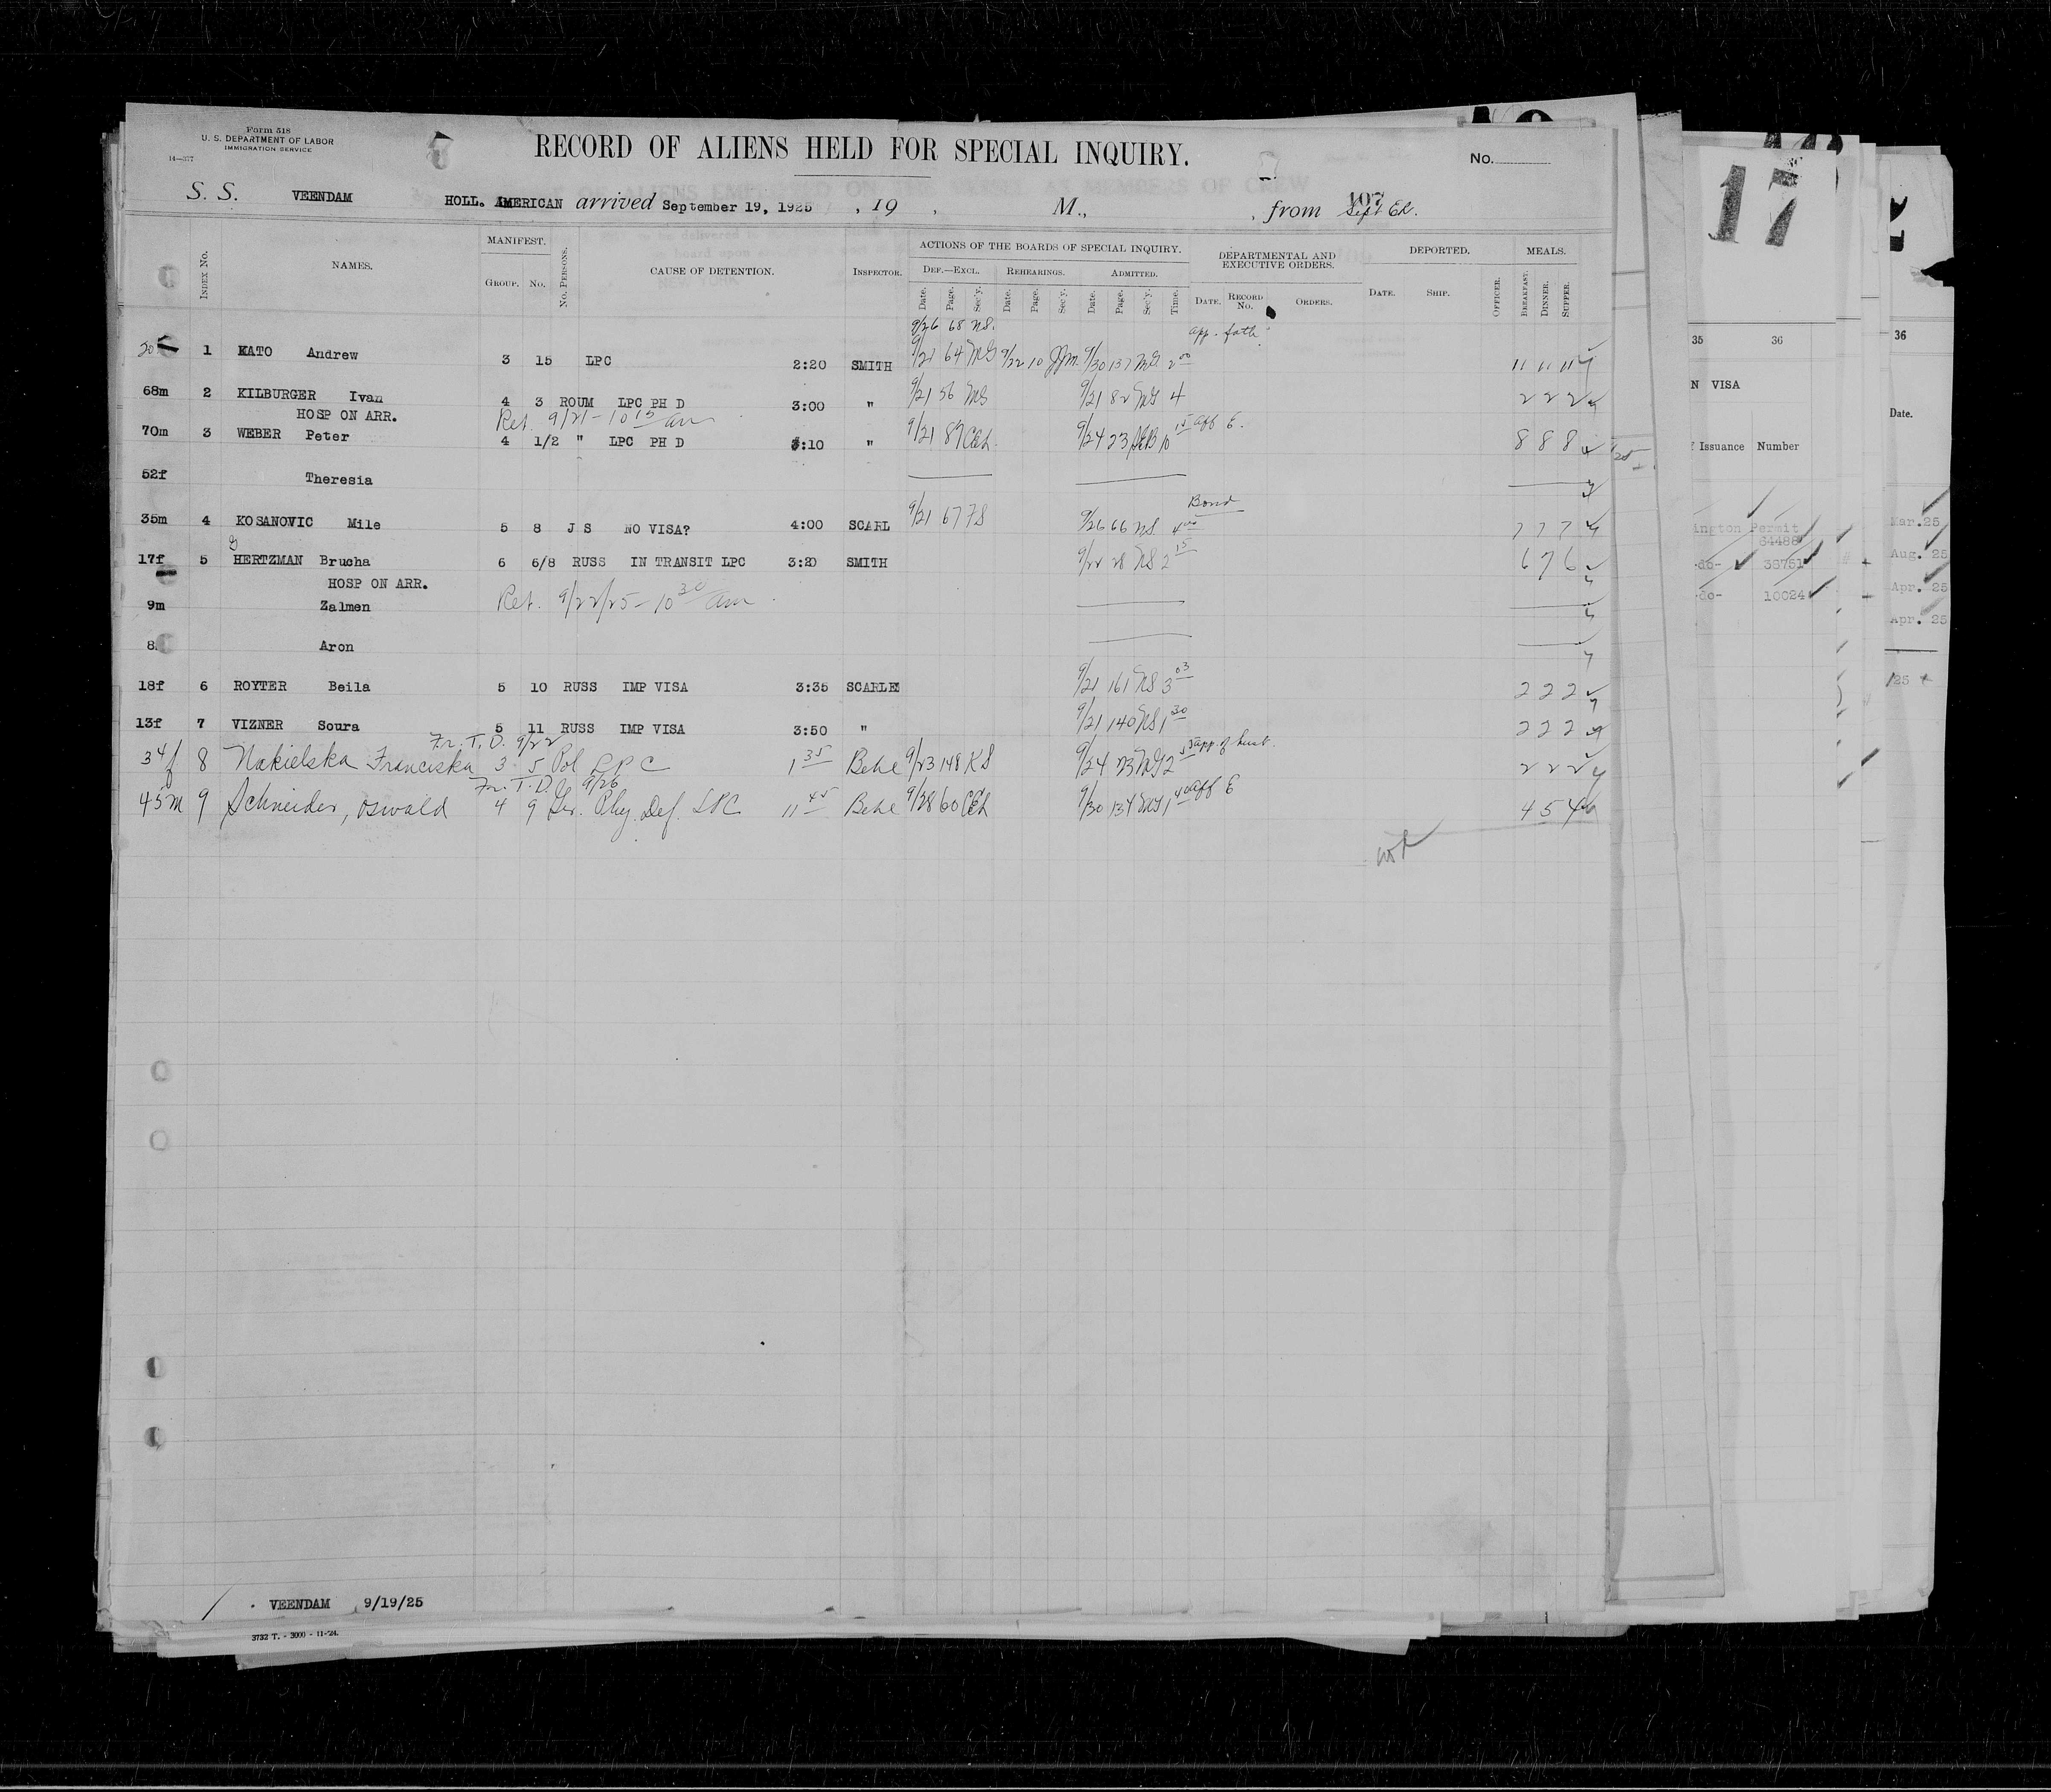 Form 518
U. S. DEPARTMENT OF LABOR
IMMIGRATION SERVICE
14—377
RECORD OF ALIENS HELD FOR SPECIAL INQUIRY.
No.
S. S. VEENDAM HOLL. AMERICAN arrived September 19, 1925 , 19 , M., , from 107
INDEX No. NAMES. MANIFEST. GROUP. No. No. PERSONS. CAUSE OF DETENTION. INSPECTOR. ACTIONS OF THE BOARDS OF SPECIAL INQUIRY. DEF.—EXCL. REHEARINGS. ADMITTED. DEPARTMENTAL AND EXECUTIVE ORDERS. DEPORTED. MEALS.
Date. Page. Sec'y. Date. Page. Sec'y. Date. Page. Sec'y. Time. DATE. RECORD No. ORDERS. DATE. SHIP. OFFICER. BREAKFAST. DINNER. SUPPER.
9/26 68 NS. app. fath
20 1 KATO Andrew 3 15 LPC 2:20 SMITH 9/21 64 MG 9/22 10 9/30 137 MG. 2 00 11 11 11
68m 2 KILBURGER Ivan 4 3 ROUM LPC PH D 3:00 " 9/21 56 MG 9/21 82 MG 4 2 2 2
HOSP ON ARR. Ret. 9/21 - 10 15 am
70m 3 WEBER Peter 4 1/2 " LPC PH D 3:10 " 9/21 89 CEL 9/24 23 10 15 aff E. 8 8 8
52f Theresia
Bond
35m 4 KOSANOVIC Mile 5 8 J S NO VISA? 4:00 SCARL 9/21 67 9/26 66 NS. 4 00 7 7 7
G
17f 5 HERTZMAN Brucha 6 6/8 RUSS IN TRANSIT LPC 3:20 SMITH 9/22 28 NS 2 15 6 7 6
HOSP ON ARR.
9m Zalmen Ret. 9/22/25 - 10 30 am
8 Aron
18f 6 ROYTER Beila 5 10 RUSS IMP VISA 3:35 SCARLE 9/21 161 NS 3 03 2 2 2
13f 7 VIZNER Soura 5 11 RUSS IMP VISA 3:50 " 9/21 140 NS 1 30 2 2 2
Fr. T. D. 9/22
34f 8 Nakielska Franciska 3 5 Pol LPC 1 35 9/23 148 KS 9/24 73 MG 2 app. of husb. 2 2 2
Fr. T. D. 9/26
45m 9 Schneider, Oswald 4 9 Ger. Phy. Def. LPC 11 45 9/28 60 CEL 9/30 134 MG 1 40 aff E 4 5 4
VEENDAM 9/19/25
3732 T. - 3000 - 11-'24.
17
35 36
N VISA
Issuance Number
ington Permit
64488
-do- 36751
-do- 10024
36
Date.
Mar.25
Aug. 25
Apr. 25
Apr. 25